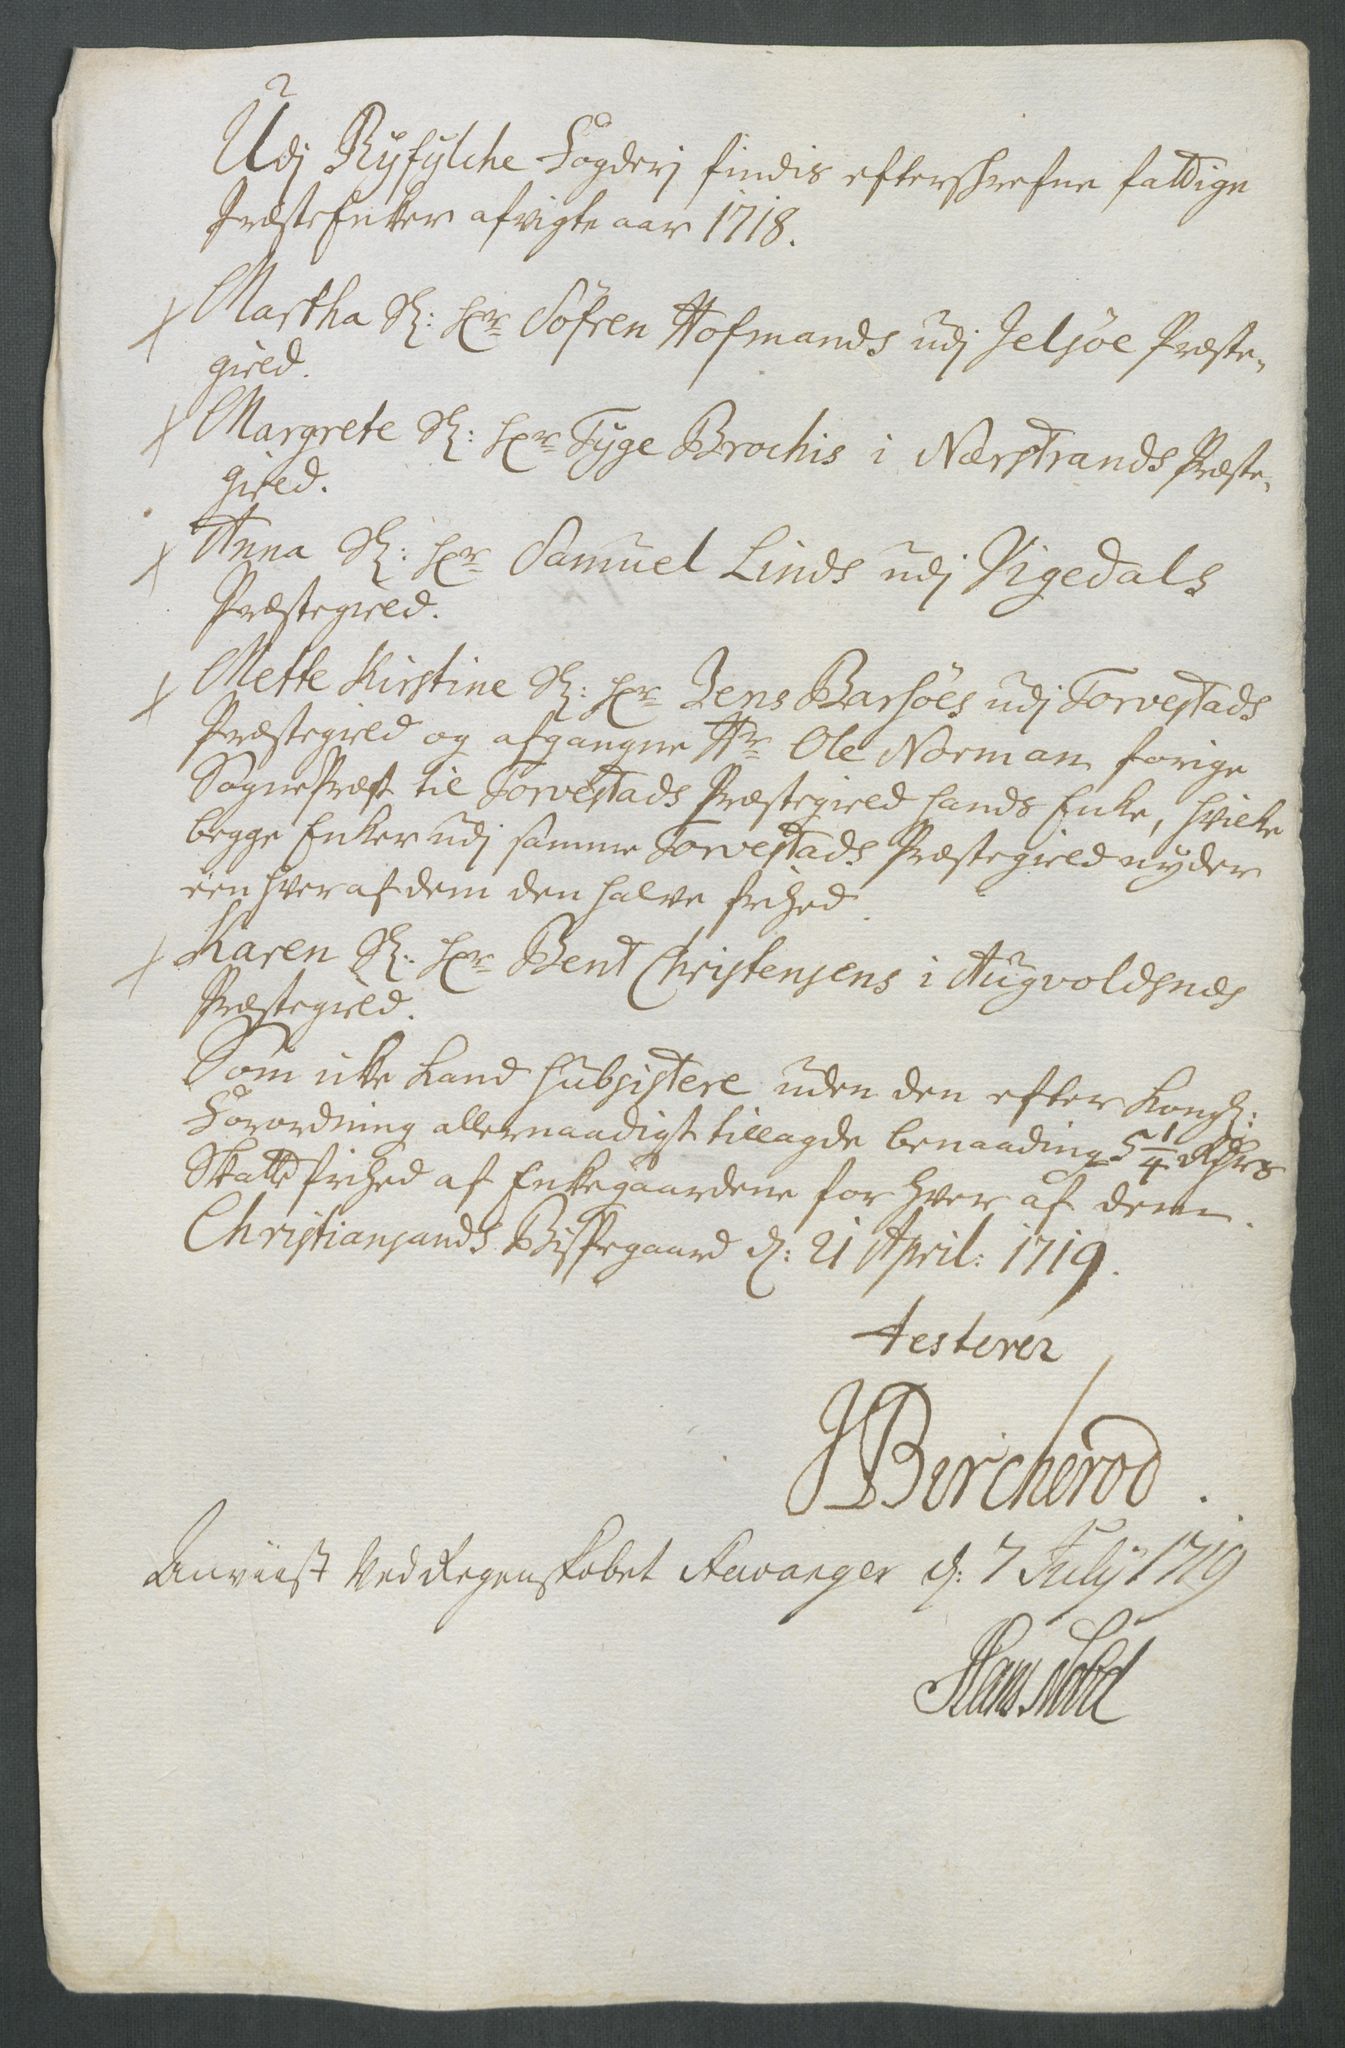 Udj Ryfylche Fogderj findis efterskrefne fattige
PræsteEnker afvigte aar 1718.
Martha Sl: Hr Søfren Hofmands udj Jelsøe Præste-
gield.
Margrete Sl: Hr Tyge Brochis i Nærstrands Præste-
gield.
Anna Sl: Hr Samuel Linds udj Vigedals
Præstegield.
Mette Kirstine Sl: Hr Jens Barsøes udj Torvestads
Præstegield og afgangne Hr Ole Norman forige
SognePræst til Torvestads Præstegield hands Enke, hvilke
begge Enker udj samme Torvestads Præstegield nyder
een hver af dem den halve frihed.
Karen Sl: Hr Bent Christensens i Augvoldsnes
Præstegield.
Som icke kand subsistere uden den efter Kongl:
Forordning allernaadigst tillagde benaading 5 1/4 Rdlrs
Skatte frihed af Enkegaardene for hver af dem.
Christiansands Bispegaard d: 21 April: 1719.
testerer
J Bircherod.
Anviist Ved Regenskabet Stavanger d: 7 July 1719
Hans